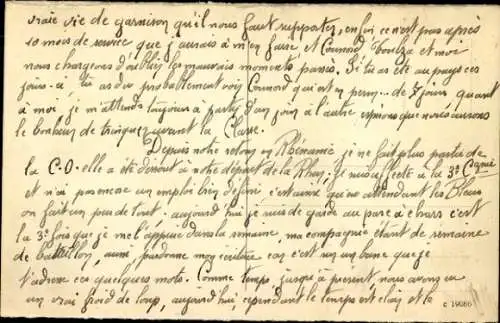 vraie vie de garnison qu'il nous faut supporter, enfin ce n'est pas après
10 mois de service que j'aurais à m'en faire et Counord Toulza et moi
nous chargeons d'oublier les mauvais moments passés. Si tu as été au pays ces
jours-ci, tu as du probablement voir Counord qui est en perm.. de 7 jours quant
à moi je m'attends toujours à partir d'un jour à l'autre espérons que nous aurons
le bonheur de trinquer avant la Classe.
Depuis notre retour en Rhénanie je ne fait plus partie de
la C.O. elle a été dissout à notre départ de la Rhur. Je suis affecté à la 3e Cgnie
et n'ai pas encore un emploi bien défini c'est ainsi qu'en attendant les Bleus
on fait un peu de tout. aujourd'hui je suis de garde au parc à chars c'est
la 3e fois que je me l'appuie dans la semaine, ma compagnie étant de semaine
de bataillon, aussi, pardonne mon écriture car c'est sur un banc que je
t'adresse ces quelques mots. Comme temps jusqu'à présent nous avons eu
un vrai froid de loup, aujourd'hui, cependant le temps est clair et le
c 19086